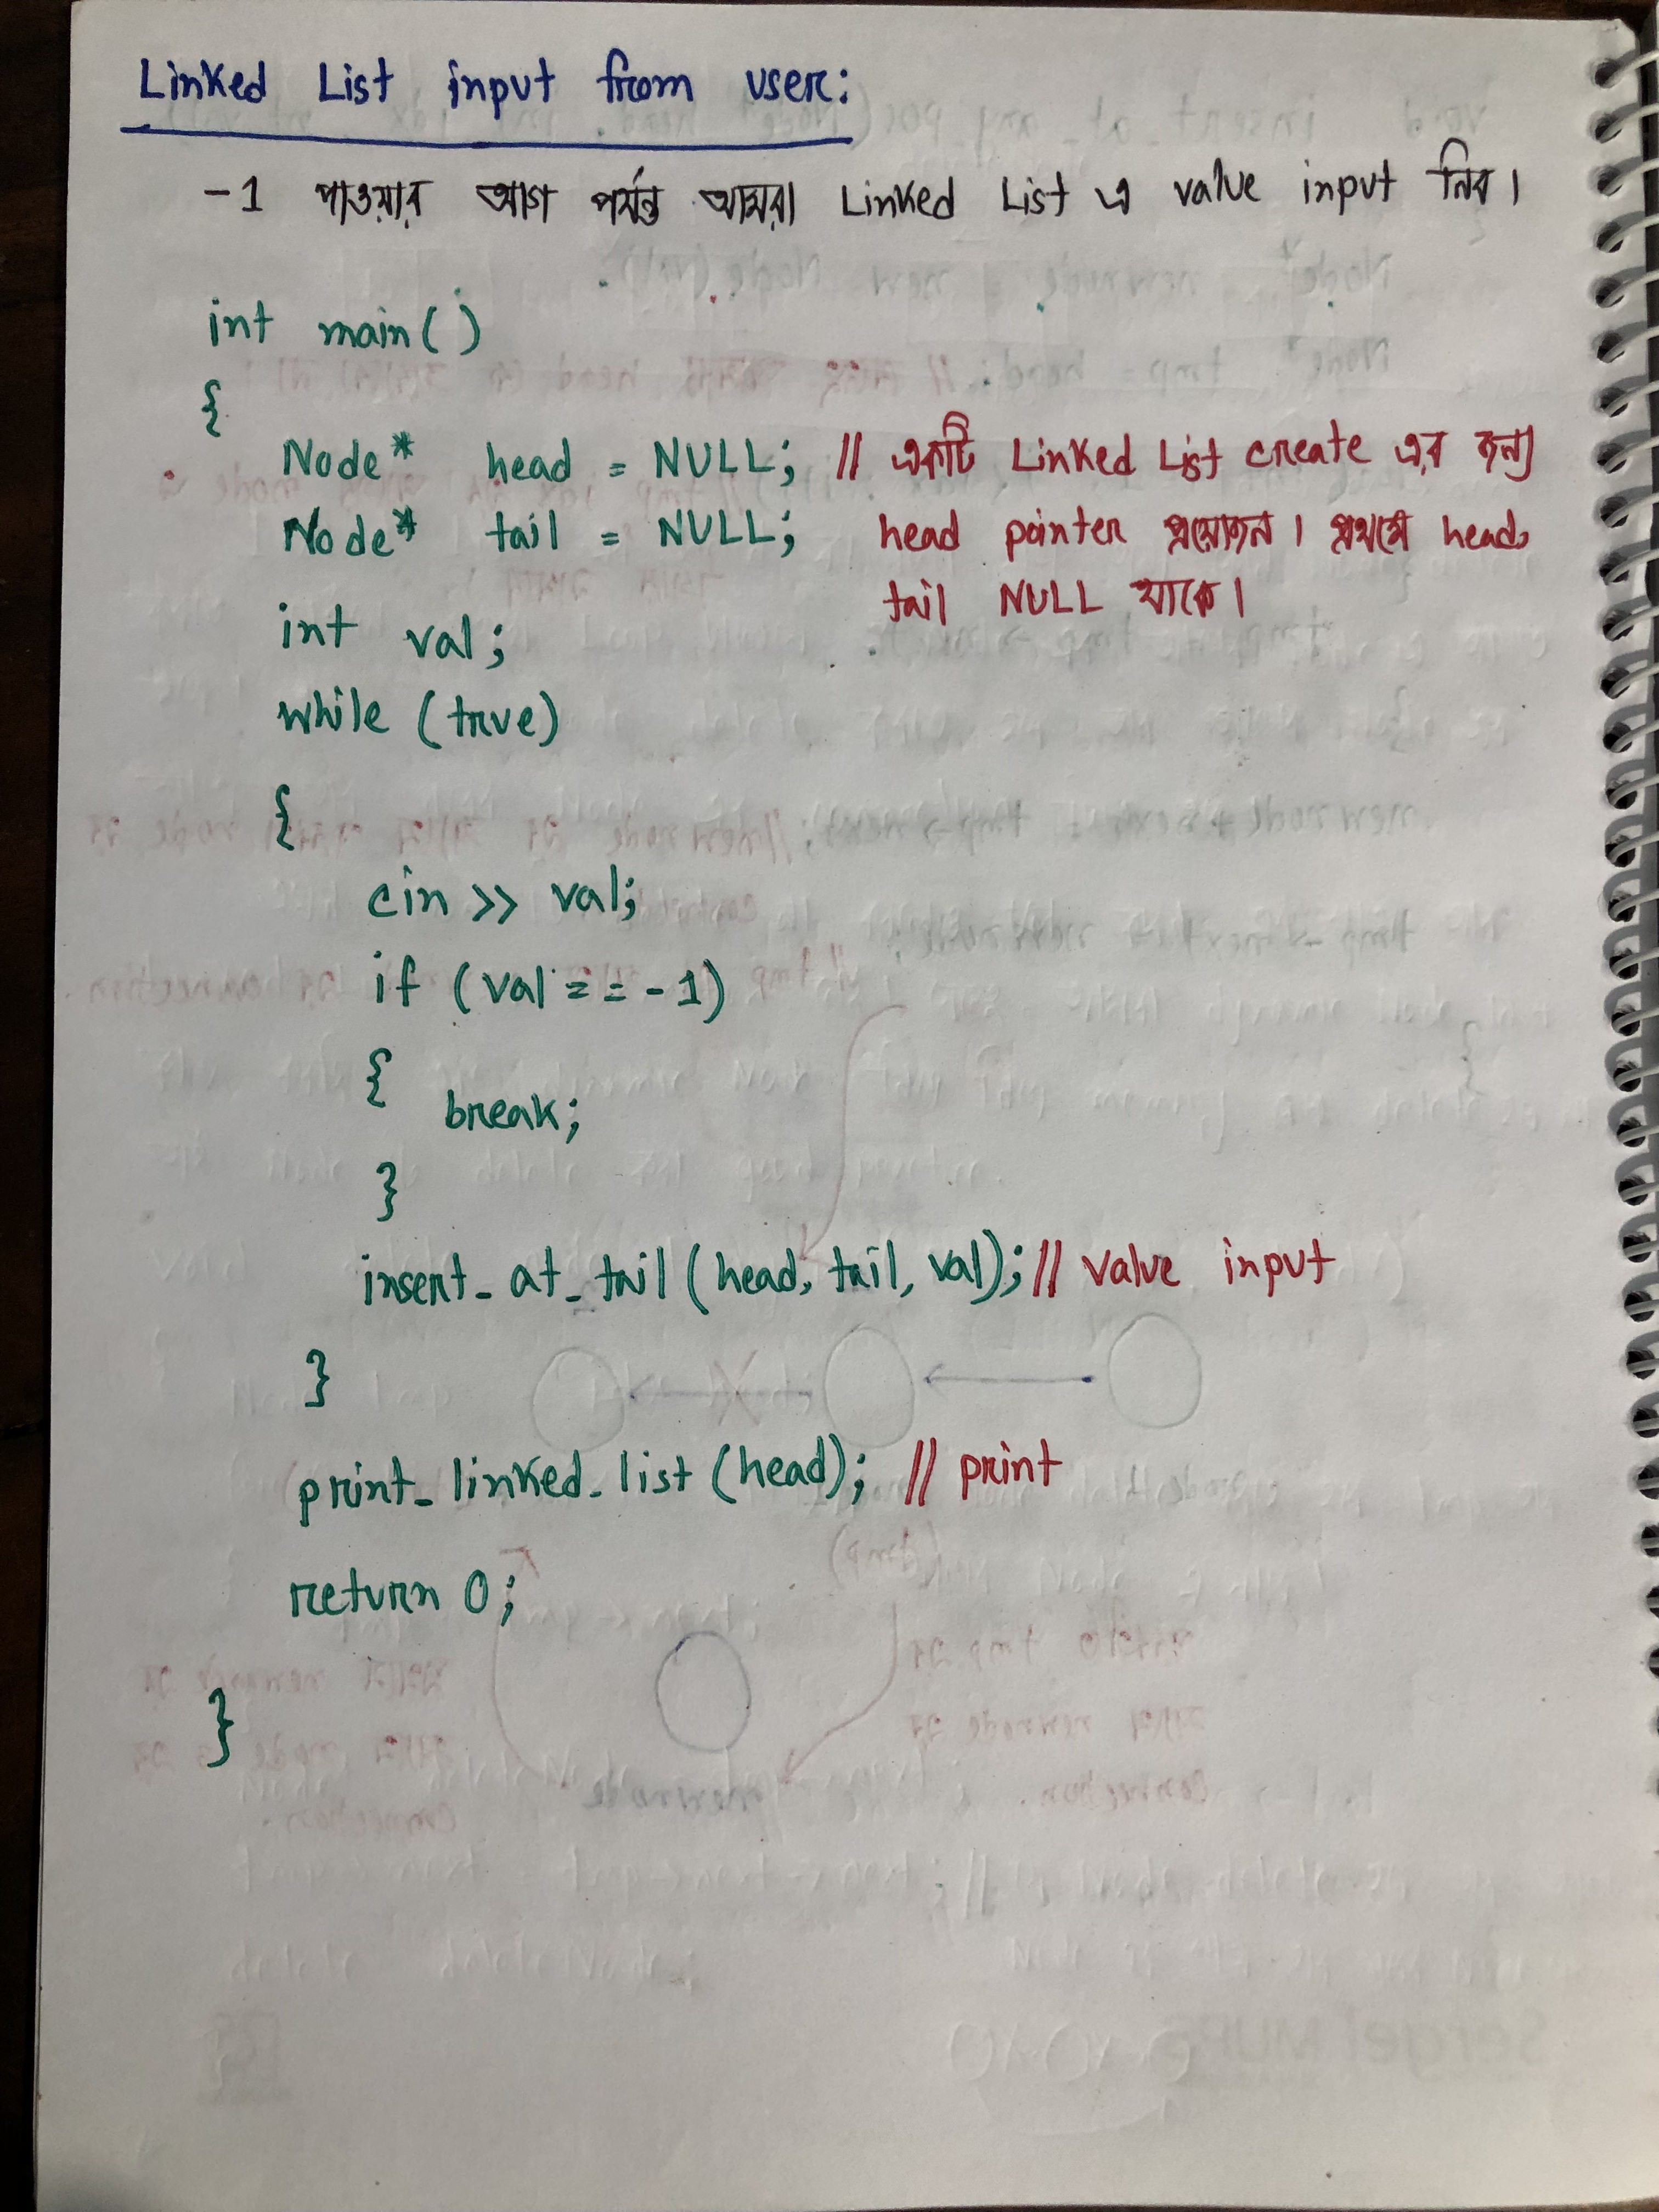 Linked List input from user:
-1 পাওয়ার আগ পর্যন্ত আমরা Linked List এ value input নিব।
int main()
{
Node* head = NULL; // একটি Linked List create এর জন্য
Node* tail = NULL; head pointer প্রয়োজন। প্রথমে head,
tail NULL থাকে।
int val;
while (true)
{
cin >> val;
if (val == -1)
{
break;
}
insert_at_tail (head, tail, val); // value input
}
print_linked_list (head); // print
return 0;
}